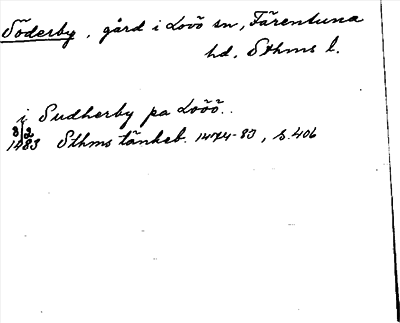 Söderby, gård i Lovö sn, Färentuna
hd, Sthms l.
i Sudherby pa Looö..
3/2
1483 Sthms tänkeb. 1474-83, s. 406